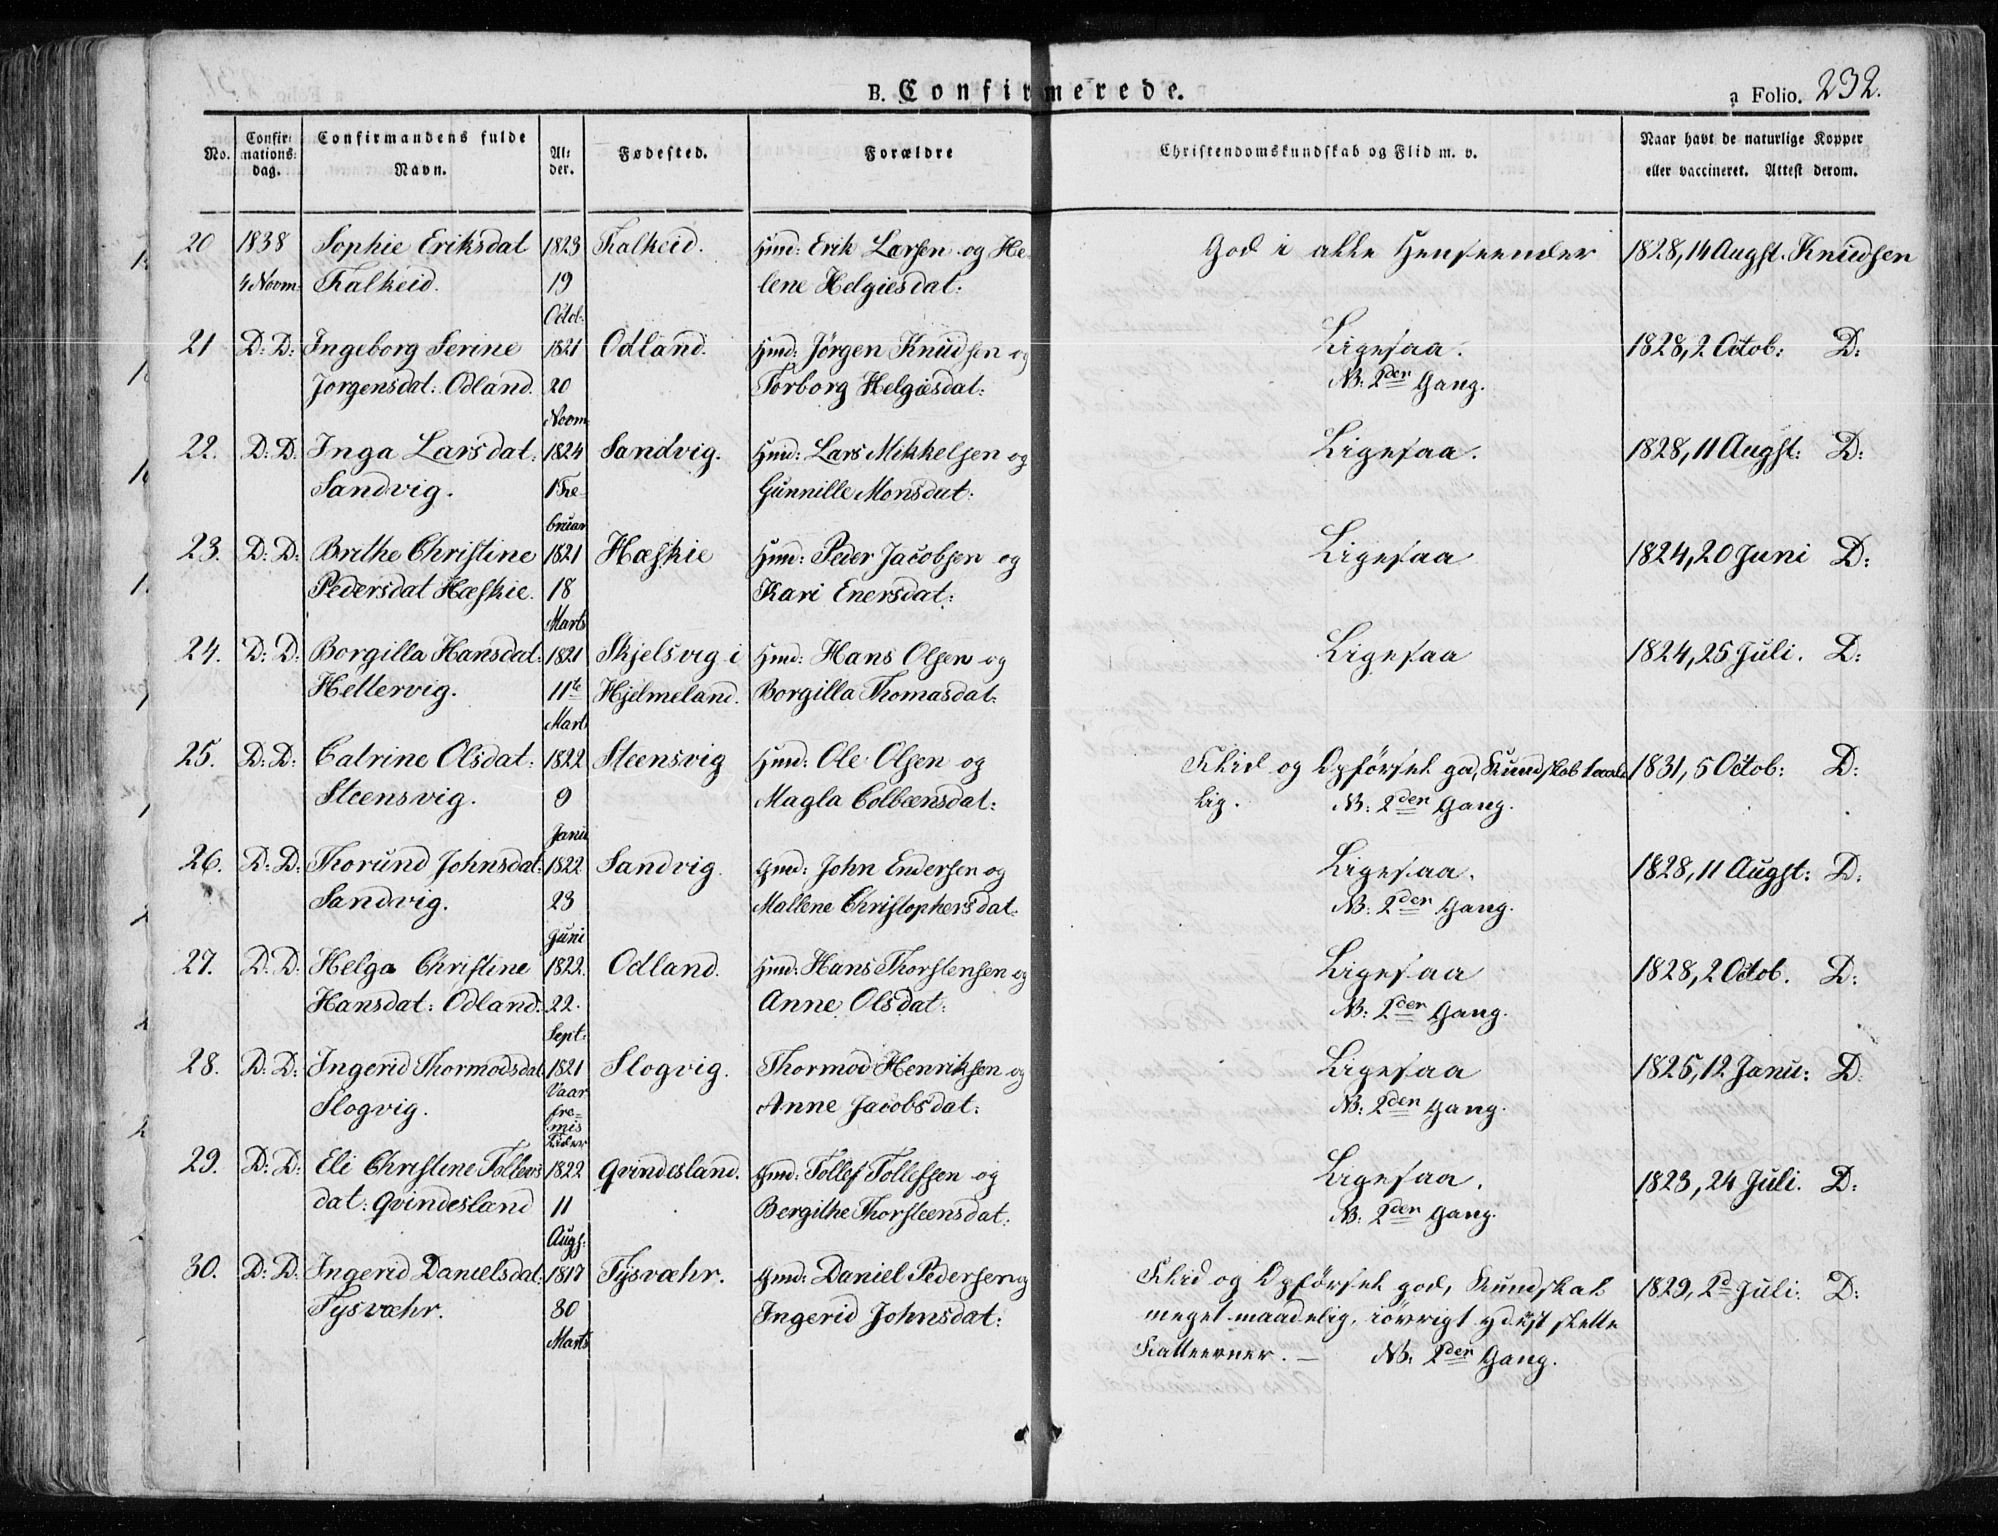 B. Confirmerede.
a Folio. 232.
No.
Confir-
mations-
dag.
Confirmandens fulde
Navn.
Al-
der.
Fødested.
Forældre
Christendomskundskab og Flid m. v.
Naar havt de naturlige Kopper
eller vaccineret. Attest derom.
20 1838 Sophie Eriksdat 1823 Falkeid. Gmd: Erik Larsen og He- God i alle Henseender 1828, 14 Augst. Knudsen
4 Novm: Falkeid. 19 lene Helgiesdat:
Octob.
21 D: D: Ingeborg Serine 1821 Odland. Gmd: Jørgen Knudsen og Ligesaa. 1828, 2 Octob: D:
Jørgensdat: Odland. 20 Torborg Helgiesdat: NB: 2den Gang.
Novm
22. D: D. Inga Larsdat: 1824 Sandvig. Gmd: Lars Mikkelsen og Ligesaa. 1828, 11 Augst: D:
Sandvig. 1 Fe- Gunnille Monsdat:
bruar
23. D: D: Brithe Christine 1821 Hæskie Gmd: Peder Jacobsen og Ligesaa 1824, 20 Juni D:
Pedersdat Hæskie. 18 Kari Enersdat:
Marts
24. D: D: Borgilla Hansdat: 1821 Skjelsvig i Gmd: Hans Olsen og Ligesaa 1824, 25 Juli. D:
Hettervig. 11te Hjelmeland. Borgilla Thomasdat:
Mart
25. D: D: Catrine Olsdat: 1822 Steensvig Gmd: Ole Olsen og Flid og Opførsel god, Kundskab taale 1831, 5 Octob: D:
Steensvig. 9 Magla Colbeensdat: lig. NB: 2den Gang.
Janu
26. D: D: Thorund Johnsdat: 1822 Sandvig. Gmd: John Endersen og Ligesaa. 1828, 11 Augst: D:
Sandvig. 23 Mallene Christophersdat: NB: 2den Gang.
Juni
27. D: D: Helga Christine 1822. Odland. Gmd: Hans Thorstensen og Ligesaa 1828, 2 Octob. D:
Hansdat: Odland: 22. Anne Olsdat: NB: 2den Gang.
Sept:
28. D: D: Ingerid Thormodsdat 1821 Slogvig. Thormod Henriksen og Ligesaa 1825, 12 Janu: D:
Slogvig. Vaar Anne Jacobsdat: NB: 2den Gang.
fre-
mis
Tider
29. D: D: Eli Christine Tollevs 1822 Qvindesland. Gmd: Tollef Tollefsen og Ligesaa. 1823, 24 Juli. D:
dat: Qvindesland 11 Bergithe Thorsteensdat: NB: 2den Gang.
Augs:
30. D: D: Ingerid Danielsdat: 1817 Tysvæhr. Gmd: Daniel Pedersen og Flid og Opførsel god, Kundskab 1829, 2d Juli. D:
Tysvæhr. 30 Ingerid Johnsdat: meget maadelig, iøvrigt yderst slette
Marts Fatteevner. — NB: 2den Gang.